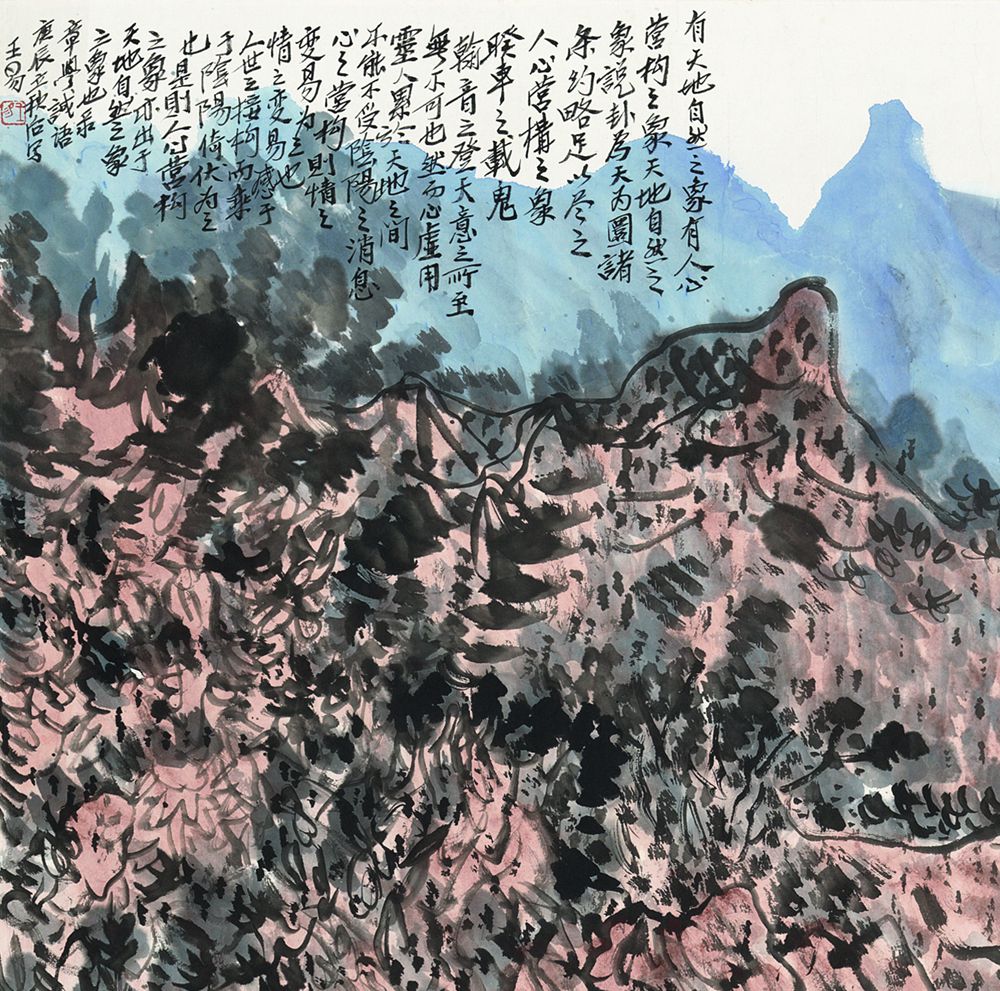 有天地自然之象有人心
营构之象天地自然之
象说卦為天为圜諸
条约略足以尽之
人心营構之象
睽車之載鬼
翰音之登天意之所至
無不可也然而心虚用
靈人累於天地之间
不能不受陰陽之消息
心之营构則情之
变易为之也
情之变易感于
人世之接构而乘
于陰陽倚伏为之
也是則人心营构
之象亦出于
天地自然之象
之象也录
章學誠语
庚辰立秋后写
王易